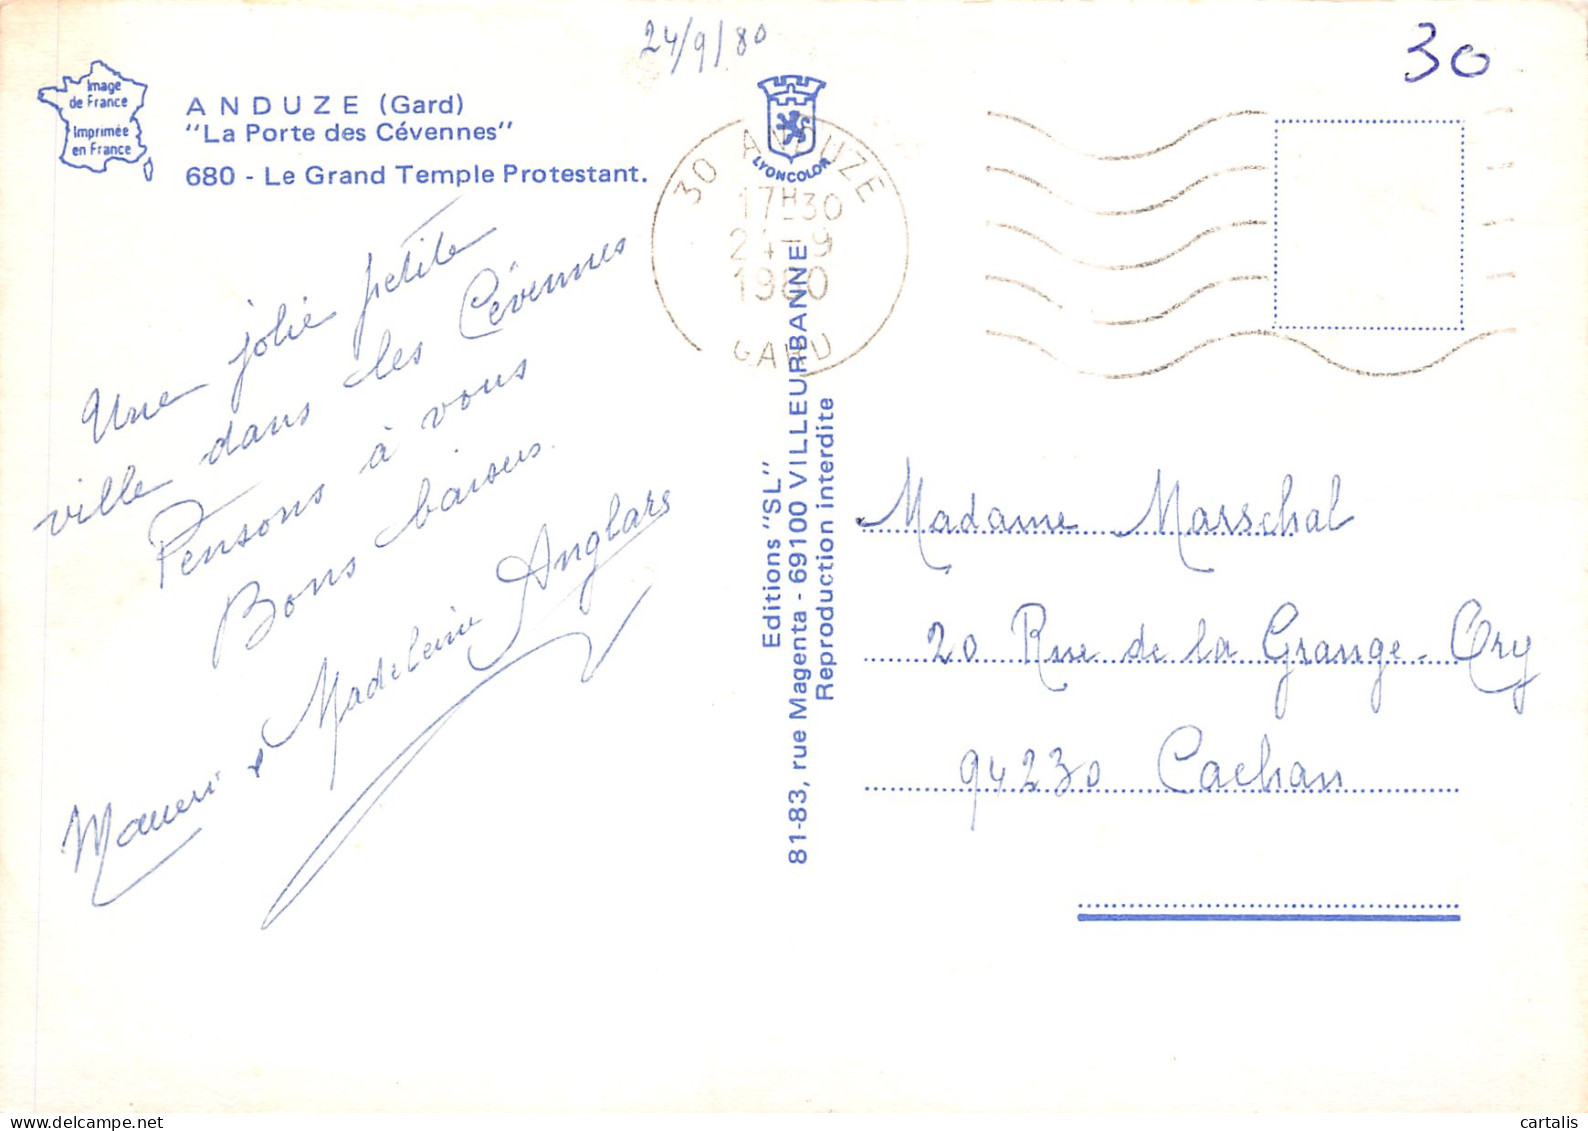 24/9/80
30
Image
de France
Imprimée
en France
ANDUZE (Gard)
"La Porte des Cévennes"
680 - Le Grand Temple Protestant.
LYONCOLOR
30 ANDUZE
17H30
24-9
1980
GARD
Une jolie petite
ville dans les Cévennes
Pensons à vous
Bons baisers.
Madeleine Anglars
Editions "SL"
81-83, rue Magenta - 69100 VILLEURBANNE
Reproduction interdite
Madame Marschal
20 Rue de la Grange-Ory
94230 Cachan
cartalis